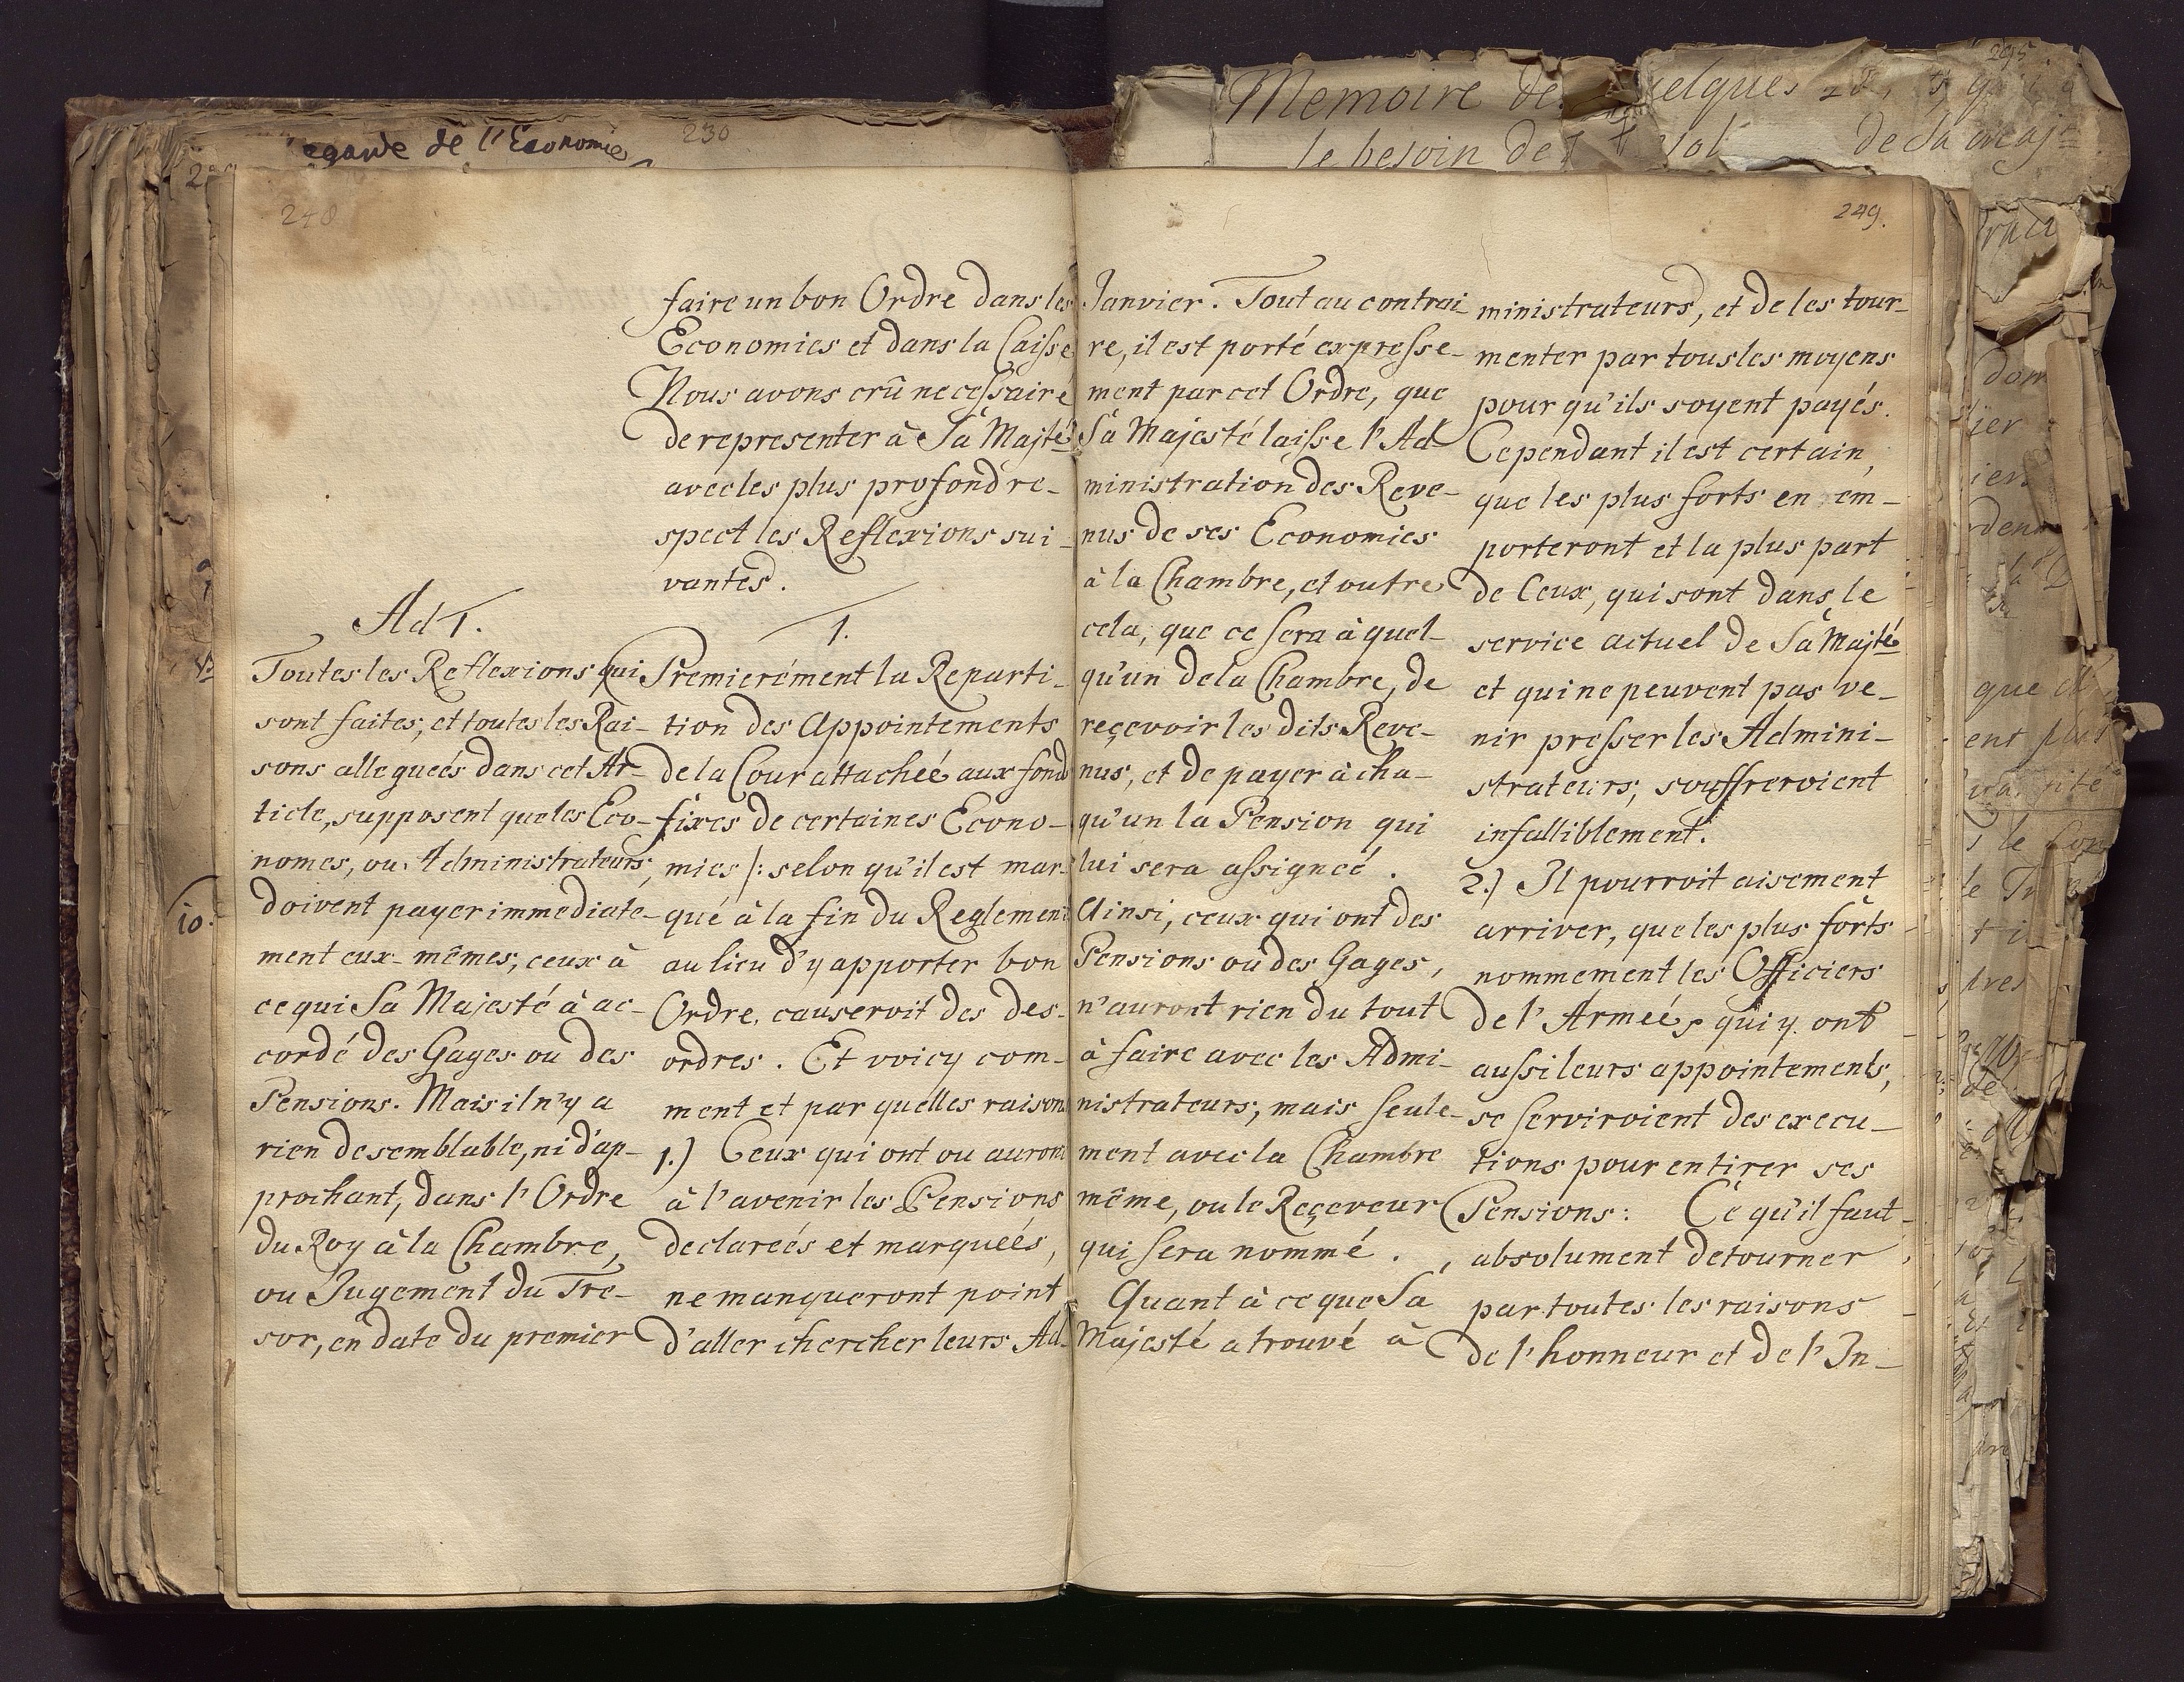 egarde de l'Economie
230
248
faire un bon Ordre dans les
Economies et dans la Caisse
Nous avons crû necessaire
de representer à Sa Majté
avec les plus profond re-
spect les Reflexions sui-
vantes.
Ad 1.
Toutes les Reflexions qui
sont faites, et toutes les Rai-
sons alleguées dans cet Ar-
ticle, supposent que les Eco-
nomes, ou Administrateurs,
doivent payer immediate-
ment eux-mêmes, ceux à
ce qui Sa Majesté à ac-
cordé des Gages ou des
Pensions. Mais il n'y a
rien de semblable, ni d'ap-
prochant, dans l'Ordre
du Roy à la Chambre,
ou Jugement du Tre-
sor, en date du premier
1.
Premierément la Reparti-
tion des Appointements
de la Cour attacheé aux fond
fixes de certaines Econo-
mies /: selon qu'il est mar-
qué à la fin du Reglement
au lieu d'y apporter bon
Ordre, causeroit des des-
ordres. Et voicy com-
ment et par quelles raisons
1.) Ceux qui ont ou auront
à l'avenir les Pensions
declareés et marqueés,
ne manqueront point
d'aller chercher leurs Ad-
249.
Janvier. Tout au contrai-
re, il est porté expresse-
ment par cet Ordre, que
Sa Majesté laisse l'Ad-
ministration des Reve-
nus de ses Economies
à la Chambre, et outre
cela, que ce sera à quel-
qu'un de la Chambre, de
reçevoir les dits Reve-
nus, et de payer à cha-
qu'un la Pension qui
lui sera assigneé.
Ainsi, ceux qui ont des
Pensions ou des Gages,
n'auront rien du tout
à faire avec les Admi-
nistrateurs, mais seule-
ment avec la Chambre
même, ou le Reçeveur
qui sera nommé.
Quant à ce que Sa
Majesté a trouvé à
ministrateurs, et de les tour-
menter par tous les moyens
pour qu'ils soyent payés.
Cependant il est certain,
que les plus forts en em-
porteront et la plus part
de Ceux, qui sont dans le
service actuel de Sa Majté
et qui ne peuvent pas ve-
nir presser les Admini-
strateurs, souffreroient
infalliblement.
2.) Il pourroit aisement
arriver, que les plus forts
nommement les Officiers
de l'Armeé, qui y ont
aussi leurs appointements,
se serviroient des execu-
tions pour en tirer ses
Pensions: Ce qu'il faut
absolument detourner
par toutes les raisons
de l'honneur et de l'In-
10.
295.
Memoire de quelques
le besoin de
de Sa